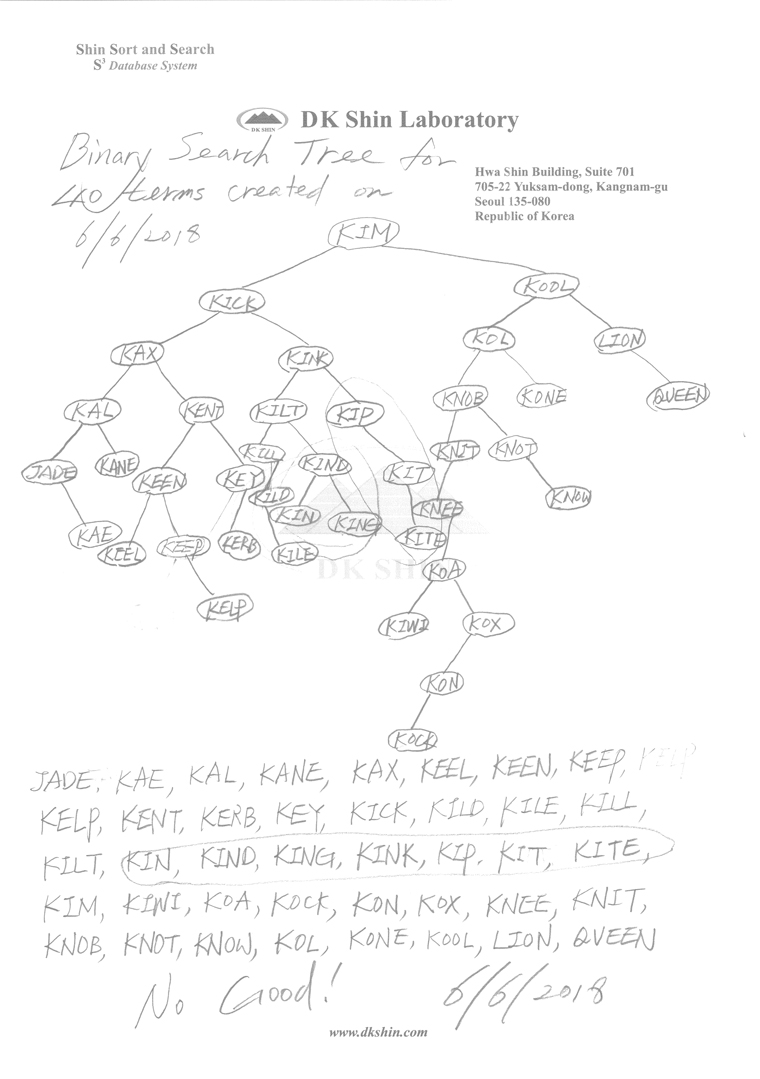 Shin Sort and Search
S³ Database System
DK SHIN
DK Shin Laboratory
Binary Search Tree for
40 terms created on
6/6/2018
Hwa Shin Building, Suite 701
705-22 Yuksam-dong, Kangnam-gu
Seoul 135-080
Republic of Korea
KIM
KICK KOOL
KAX KINK KOL LION
KAL KENT KILT KIP KNOB KONE QUEEN
JADE KANE KEEN KEY KILL KIND KIT KNIT KNOT
KILD KNOW
KAE KEEL KEEP KERB KIN KING KITE KNEE
KILE
DK SH KOA
KELP KIWI KOX
KON
KOCK
JADE, KAE, KAL, KANE, KAX, KEEL, KEEN, KEEP, KELP
KELP, KENT, KERB, KEY, KICK, KILD, KILE, KILL,
KILT, KIN, KIND, KING, KINK, KIP. KIT, KITE,
KIM, KIWI, KOA, KOCK, KON, KOX, KNEE, KNIT,
KNOB, KNOT, KNOW, KOL, KONE, KOOL, LION, QUEEN
No Good! 6/6/2018
www.dkshin.com